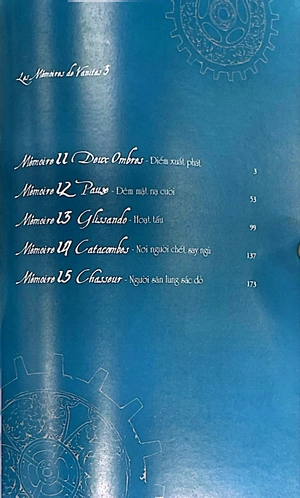 Les Mémoires de Vanitas 3
Mémoire 11 Deux Ombres - Điểm xuất phát 3
Mémoire 12 Pause - Đêm mặt nạ cười 53
Mémoire 13 Glissando - Hoạt tấu 99
Mémoire 14 Catacombes - Nơi người chết say ngủ 137
Mémoire 15 Chasseur - Người săn lùng sắc đỏ 173